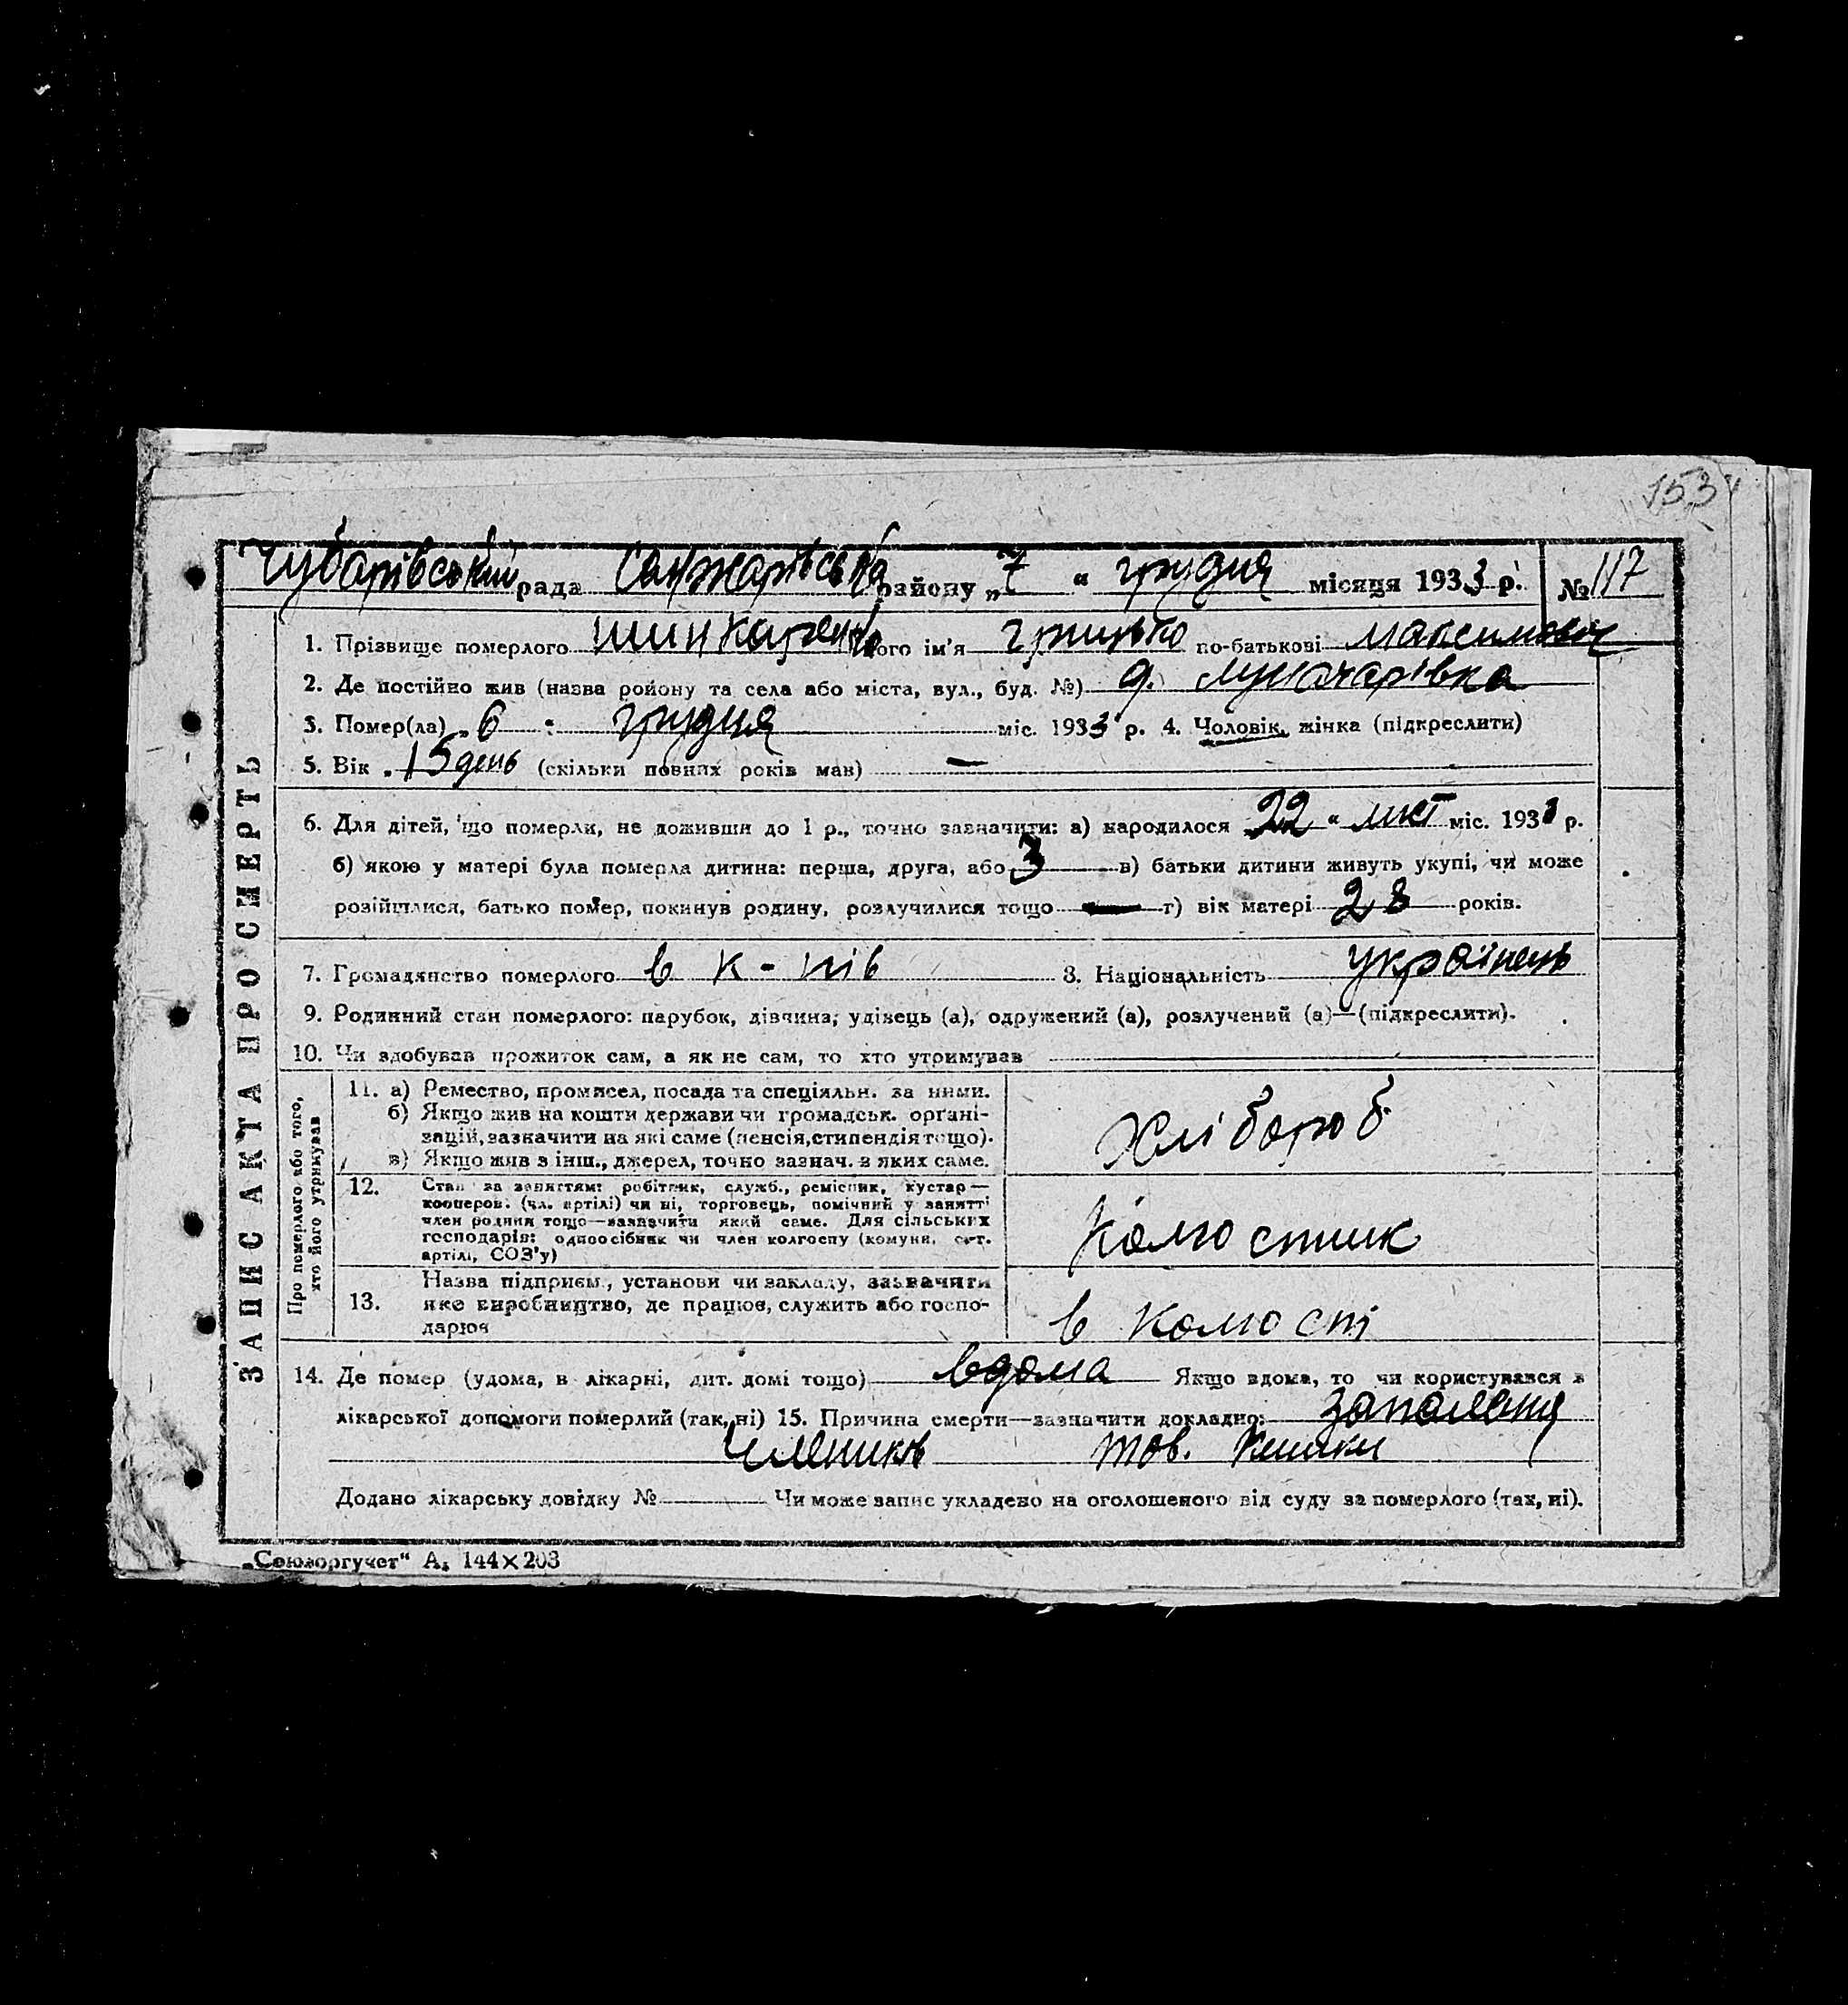 153
Чубарівський рада Санжарівська району „7 “ грудня місяця 1933 р. № 117
ЗАПИС АКТА ПРО СМЕРТЬ
1. Прізвище померлого Шинкаренко його ім'я Грицько по-батькові Максимович
2. Де постійно жив (назва ройону та села або міста, вул., буд. №)
3. Помер(ла) „6 : грудня міс. 1933 р. 4. Чоловік, жінка (підкреслити)
5. Вік „ 15 день (скільки повних років мав) —
6. Для дітей, що померли, не доживши до 1 р., точно зазначити: а) народилося 22 “ лист міс. 1933 р.
б) якою у матері була померла дитина: перша, друга, або 3 в) батьки дитини живуть укупі, чи може
розійшлися, батько помер, покинув родину, розлучилися тощо — г) вік матері 28 років.
7. Громадянство померлого 8. Національність українець
9. Родинний стан померлого: парубок, дівчина, удівець (а), одружений (а), розлучений (а)—(підкреслити).
10. Чи здобував прожиток сам, а як не сам, то хто утримував
Про померлого або того, хто його утримував
11. а) Ремество, промисел, посада та спеціяльн. за ними.
б) Якщо жив на кошти держави чи громадськ. органі-
зацій, зазначити на які саме (пенсія, стипендія тощо).
в) Якщо жив з інш., джерел, точно зазнач. з яких саме.
Хлібороб
12. Стан за заняттям: робітник, служб., ремісник, кустар—
кооперов. (чл. артілі) чи ні, торговець, помічний у занятті
член родини тощо—зазначити який саме. Для сільських
господарів: одноосібник чи член колгоспу (комуни, с.-г.
артілі, СОЗ'у)
Колгостник
13. Назва підприєм., установи чи закладу, зазначити
яке виробництво, де працює, служить або госпо-
дарює
в колгості
14. Де помер (удома, в лікарні, дит. домі тощо) вдома Якщо вдома, то чи користувався з
лікарської допомоги померлий (так, ні) 15. Причина смерти—зазначити докладно: запаления
тов. кишки
Додано лікарську довідку № Чи може запис укладено на оголошеного від суду за померлого (так, ні).
„Союзоргучет“ А₅ 144×203